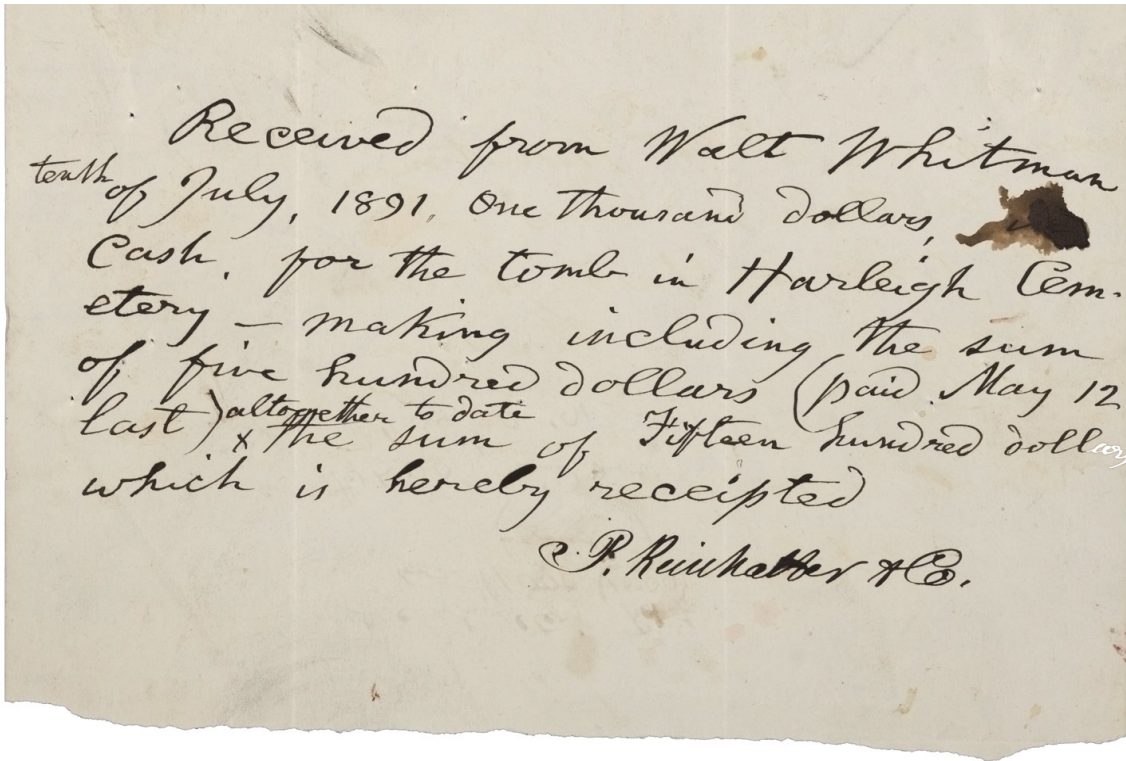 Received from Walt Whitman
tenth of July, 1891, One thousand dollars,
Cash, for the tomb in Harleigh Cem-
etery – making including the sum
of five hundred dollars (paid May 12
last) altogether to date
x the sum of Fifteen hundred dollars
which is hereby receipted
P. Reinhalter & Co.